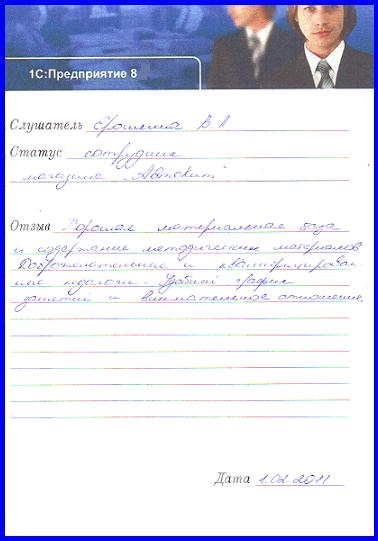 1С:Предприятие 8
Слушатель В. А
Статус сотрудник
магазина "Автокит"
Отзыв Хорошая материальная база
и содержание методических материалов
Доброжелательные и квалифицирован-
ные педагоги. Удобный график
занятий и внимательное отношение.
Дата 1.02.2011